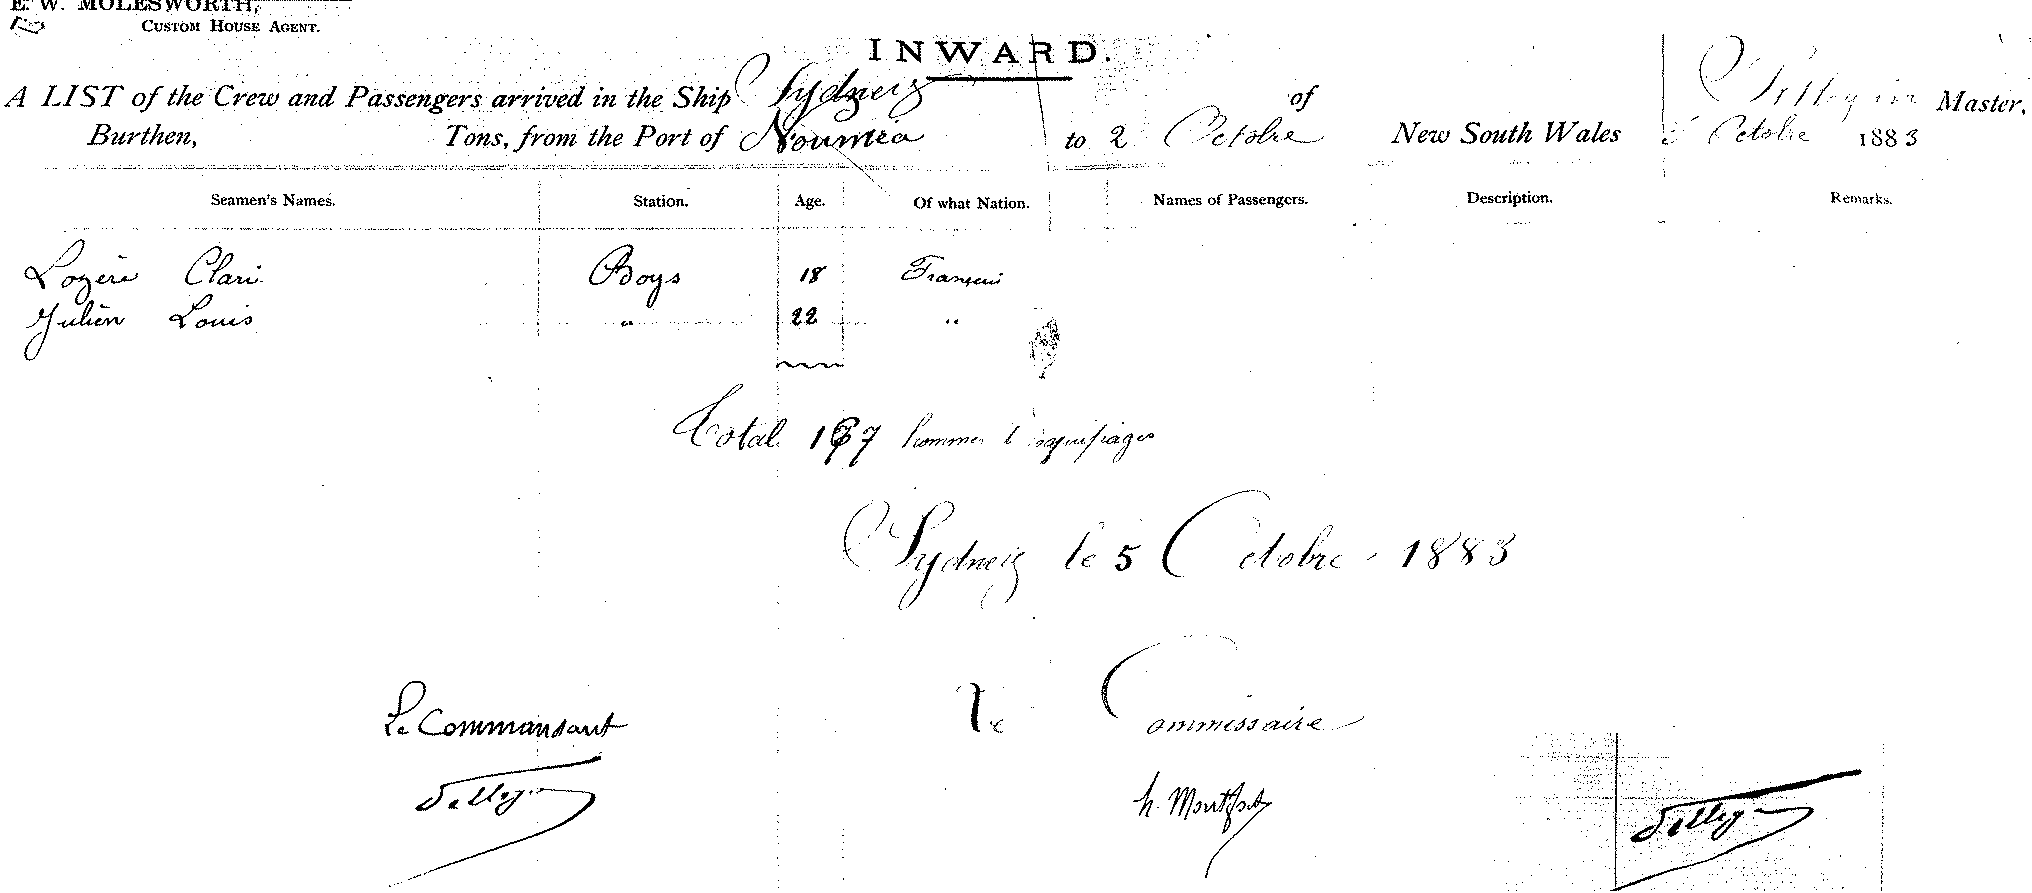 E. W. MOLESWORTH,
CUSTOM HOUSE AGENT.
INWARD.
A LIST of the Crew and Passengers arrived in the Ship Sydney of Master,
Burthen, Tons, from the Port of Nouméa to 2 Octobre New South Wales Octobre 1883
Seamen's Names. Station. Age. Of what Nation. Names of Passengers. Description. Remarks.
Lozère Clari Boys 18 Français
Julien Louis " 22 "
Total 167 hommes d'équipages
Sydney le 5 Octobre 1883
Le Commandant Le Commissaire